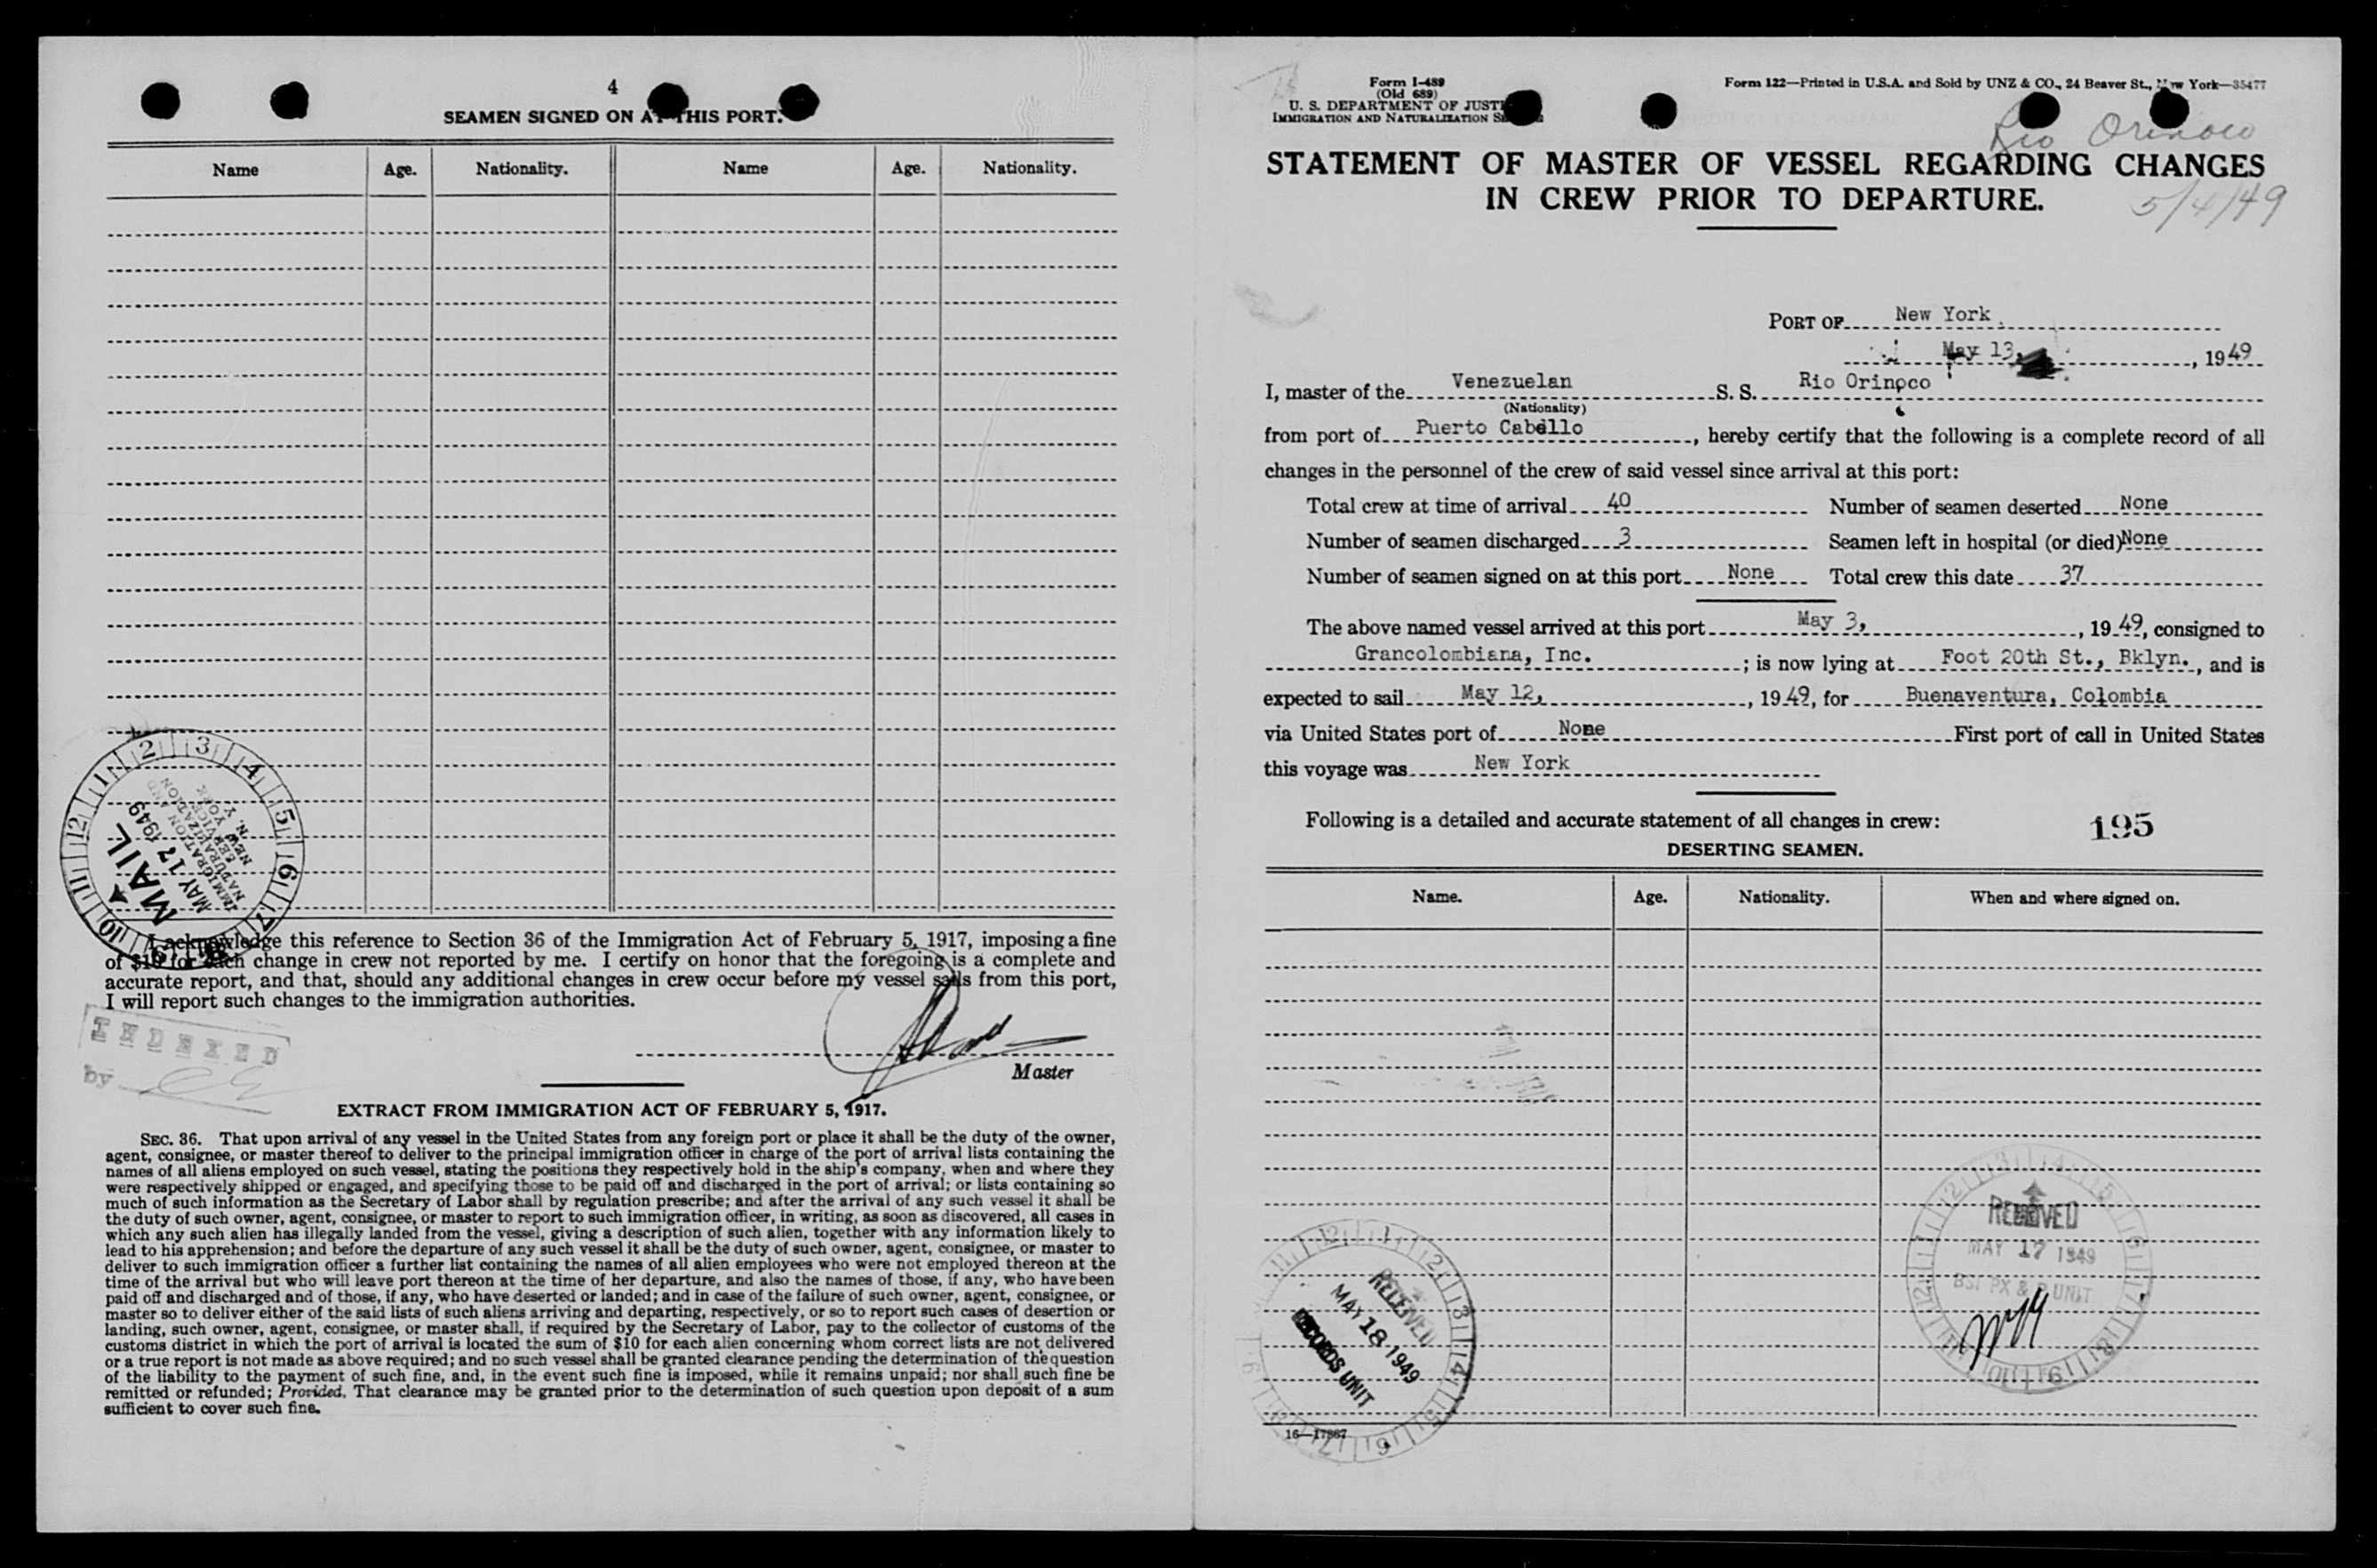 4
SEAMEN SIGNED ON AT THIS PORT.
Name Age. Nationality. Name Age. Nationality.
MAIL
MAY 17 1949
IMMIGRATION AND
NATURALIZATION
SERVICE
NEW YORK
N. Y.
I acknowledge this reference to Section 36 of the Immigration Act of February 5, 1917, imposing a fine
of $10 for each change in crew not reported by me. I certify on honor that the foregoing is a complete and
accurate report, and that, should any additional changes in crew occur before my vessel sails from this port,
I will report such changes to the immigration authorities.
INDEXED
by
Master
EXTRACT FROM IMMIGRATION ACT OF FEBRUARY 5, 1917.
SEC. 36. That upon arrival of any vessel in the United States from any foreign port or place it shall be the duty of the owner,
agent, consignee, or master thereof to deliver to the principal immigration officer in charge of the port of arrival lists containing the
names of all aliens employed on such vessel, stating the positions they respectively hold in the ship's company, when and where they
were respectively shipped or engaged, and specifying those to be paid off and discharged in the port of arrival; or lists containing so
much of such information as the Secretary of Labor shall by regulation prescribe; and after the arrival of any such vessel it shall be
the duty of such owner, agent, consignee, or master to report to such immigration officer, in writing, as soon as discovered, all cases in
which any such alien has illegally landed from the vessel, giving a description of such alien, together with any information likely to
lead to his apprehension; and before the departure of any such vessel it shall be the duty of such owner, agent, consignee, or master to
deliver to such immigration officer a further list containing the names of all alien employees who were not employed thereon at the
time of the arrival but who will leave port thereon at the time of her departure, and also the names of those, if any, who have been
paid off and discharged and of those, if any, who have deserted or landed; and in case of the failure of such owner, agent, consignee, or
master so to deliver either of the said lists of such aliens arriving and departing, respectively, or so to report such cases of desertion or
landing, such owner, agent, consignee, or master shall, if required by the Secretary of Labor, pay to the collector of customs of the
customs district in which the port of arrival is located the sum of $10 for each alien concerning whom correct lists are not delivered
or a true report is not made as above required; and no such vessel shall be granted clearance pending the determination of the question
of the liability to the payment of such fine, and, in the event such fine is imposed, while it remains unpaid; nor shall such fine be
remitted or refunded; Provided, That clearance may be granted prior to the determination of such question upon deposit of a sum
sufficient to cover such fine.
Form I-489
(Old 689)
U. S. DEPARTMENT OF JUSTI
IMMIGRATION AND NATURALIZATION S
Form 122—Printed in U.S.A. and Sold by UNZ & CO., 24 Beaver St., New York—35477
Rio Orinoco
STATEMENT OF MASTER OF VESSEL REGARDING CHANGES
IN CREW PRIOR TO DEPARTURE.
5/4/49
PORT OF New York
May 13, 1949
I, master of the Venezuelan S. S. Rio Orinoco
(Nationality)
from port of Puerto Cabello, hereby certify that the following is a complete record of all
changes in the personnel of the crew of said vessel since arrival at this port:
Total crew at time of arrival 40 Number of seamen deserted None
Number of seamen discharged 3 Seamen left in hospital (or died) None
Number of seamen signed on at this port None Total crew this date 37
The above named vessel arrived at this port May 3, 1949, consigned to
Grancolombiana, Inc.; is now lying at Foot 20th St., Bklyn., and is
expected to sail May 12, 1949, for Buenaventura, Colombia
via United States port of None First port of call in United States
this voyage was New York
Following is a detailed and accurate statement of all changes in crew:
195
DESERTING SEAMEN.
Name. Age. Nationality. When and where signed on.
RECEIVED
MAY 17 1949
BSI PX & P UNIT
RECEIVED
MAY 18 1949
RECORDS UNIT
16—17867